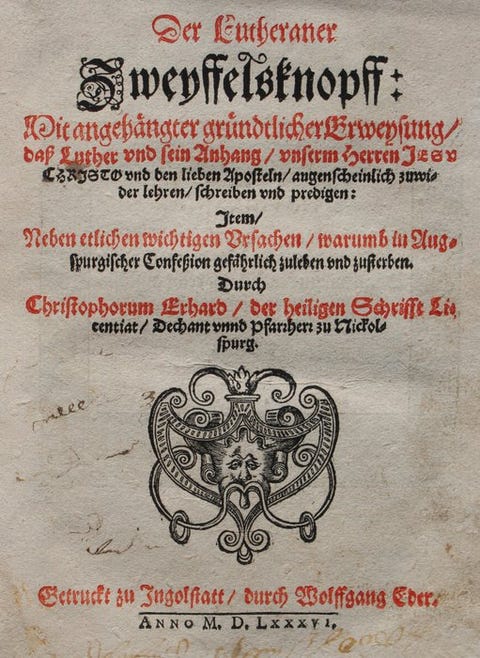 Der Lutheraner
Zweyffelsknopff:
Mit angehängter gründtlicher Erweysung/
daß Luther vnd sein Anhang/ vnserm Herren JESV
CHRISTO vnd den lieben Aposteln/ augenscheinlich zuwi-
der lehren/ schreiben vnd predigen:
Item/
Neben etlichen wichtigen Vrsachen/ warumb in Aug-
spurgischer Confeßion gefährlich zuleben vnd zusterben.
Durch
Christophorum Erhard/ der heiligen Schrifft Li-
centiat/ Dechant vnnd Pfarrherr zu Nickol-
spurg.
Getruckt zu Ingolstatt/ durch Wolffgang Eder.
ANNO M. D. LXXXVI.